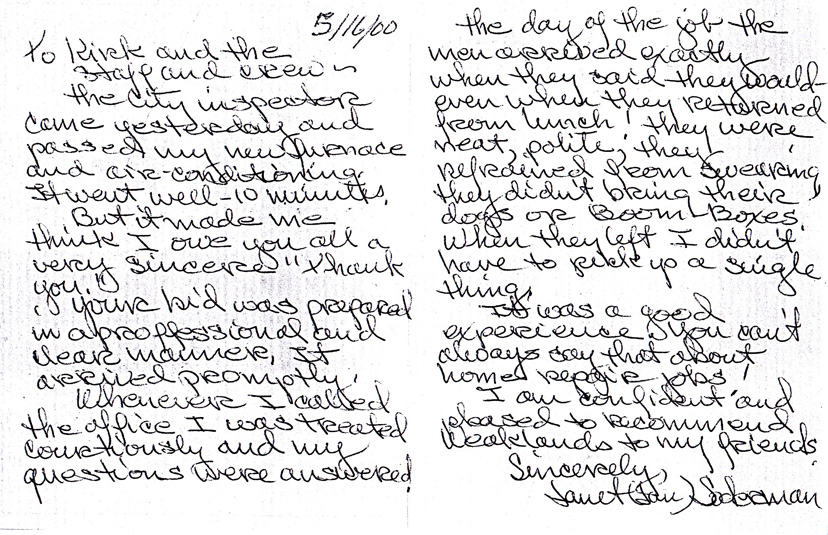 5/16/00
To Kirk and the
staff and crew ~
The city inspector
came yesterday and
passed my new furnace
and air-conditioning.
It went well - 10 minutes.
But it made me
think I owe you all a
very sincere "thank
you."
Your bid was prepared
in a proffessional and
clear manner, It
arrived promptly.
Whenever I called
the office I was treated
courtiously and my
questions were answered.
The day of the job the
men arrived exactly
when they said they would-
even when they returned
from lunch! They were
neat, polite, they
refrained from swearing,
they didn't bring their
dogs or Boom-Boxes.
When they left I didn't
have to pick up a single
thing.
It was a good
experience. You can't
always say that about
home repair jobs!
I am confident and
pleased to recommend
to my friends
Sincerely,
Janet (Jan)